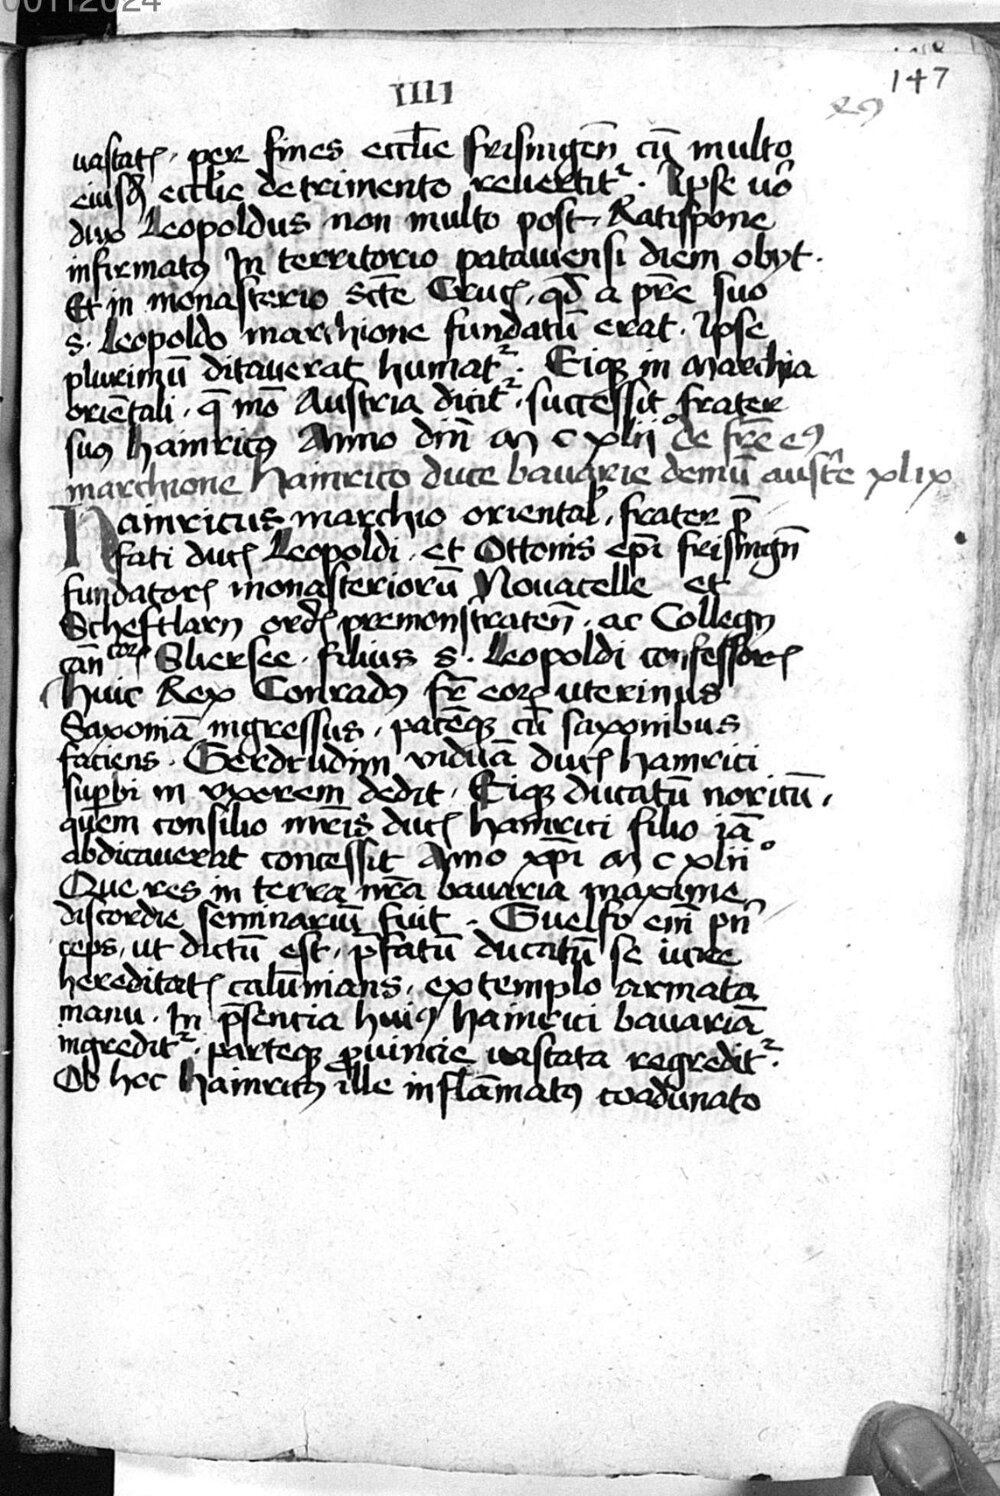 00112024
147
IIII
vastatꝭ . per fines eccl̄ie frisingeñ cū multo
eiusd̄ eccl̄ie detrimento revertitᷣ . Ipse vō
dux Leopoldus non multo post Ratispone
infirmatꝰ In territorio pataviensi diem obijt .
Et in monasterio Sctē Crucꝭ , qd̄ a pr̄e suo
s . Leopoldo marchione fundatū erat . Ipse
plurimū ditaverat humatᷣ . Eiqꝫ in marchia
oriētali . q̄ mō Austria dicitᷣ . successit frater
suꝰ hainricꝰ Anno dn̄i M c xlii° de fr̄e eꝰ
marchione hainrico duce bavarie demū austr̄e xlix
Hainricus marchio oriental , frater p̄
fati ducꝭ Leopoldi . et Ottonis ep̄i frisingn̄
fundatorꝭ monasteriorū Novacelle et
Scheftlarn ord̄ premonstrateñ . ac Collegij
cāñcorꝭ Sliersee . filius s . Leopoldi confessorꝭ
Huic Rex Conradꝰ fr̄ eorꝭ uterinus
Saxoniā ingressus , pacēqꝫ cū saxonibus
faciens . Gerdrudim viduā ducꝭ hainrici
suꝑbi in uxorem dedit . Eiqꝫ ducatū noricū ,
quem consilio mr̄is ducꝭ hainrici filio iā
abdicaverat concessit Anno xp̄i M c xlii°
Que res in terra nr̄a bavaria maxime
discordie seminariū fuit . Guelfo em̄ prī
ceps , ut dictū est , p̄fatū ducatū se iure
hereditatꝭ calūnians , extemplo armata
manu . In p̄sencia huiꝰ hainrici bavariā
ingreditᷣ . parteqꝫ ꝓvincie vastata regreditᷣ .
Ob hoc hainricꝰ ille inflāmatꝰ coadunato